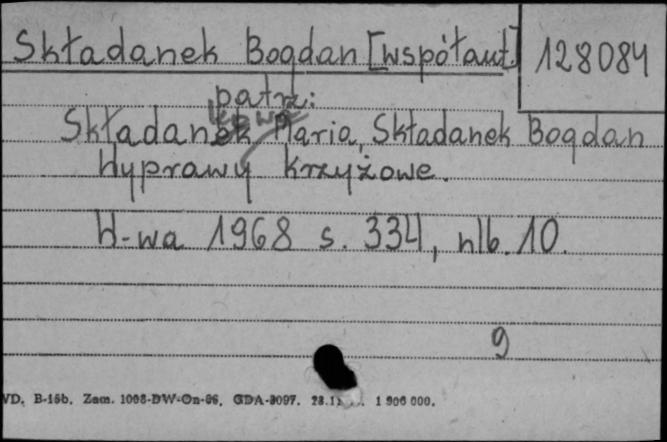 Składanek Bogdan [współaut.] 128084
patrz:
Składanek Maria, Składanek Bogdan
Wyprawy krzyżowe.
W-wa 1968 s. 334, nlb. 10.
9
VD. B-15b. Zam. 1008-DW-On-66. GDA-3097. 1 900 000.